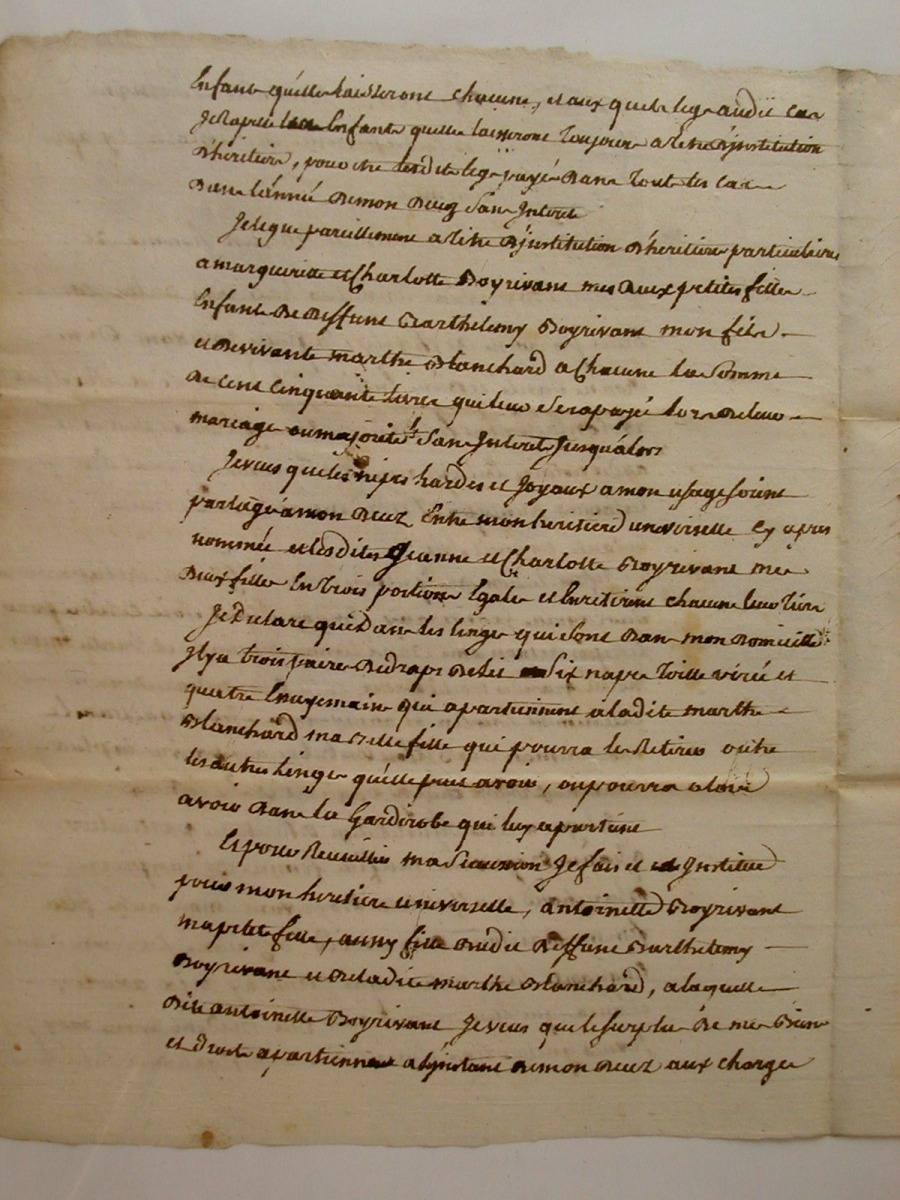 Enfans qu'elle laisseront chacune, et aux quels legs audit cas
Je rapelle les Enfants quelle laisseront toujours a titre d'jnstitution
d'heritiere, pour être lesdits legs payé dans tout les cas
dans l'année de mon decez sans Interet
Je legue pareillement a titre d'jnstitution d'heritiere particuliere
a marguerite et Charlotte Boyrivant mes deux petites filles
Enfants de deffunt Barthelemy Boyrivant mon fils
et de vivante marthe Blanchard a chacune la somme
de cent cinquante livres qui leur sera payé lors de leur
mariage ou majorité sans Interet jusqu'alors
Je veus que les nipes hardes et Joyaux a mon usage soient
partagé a mon decez Entre mon heritiere universelle cy apres
nommée et lesdites Jeanne et Charlotte Boyrivant mes
deux filles En trois portions Egales et heritieres chacune leur tiers
Je declare que dans les linges qui sont dans mon domicille
Il y a trois paires de draps de lit six napes toille virée et
quatre Essuyemains qui apartiennent a ladite marthe
Blanchard ma belle fille qui pourra les Retirer outre
les autres linges qu'elle peut avoir, ou pourra alors
avoir dans la Garderobe qui luy apartient
Et pour Recueillir ma sucession Je fais et Institue
pour mon heritiere universelle, antoinette Boyrivant
ma petite fille, aussy fille dudit deffunt Barthelemy
Boyrivant et de ladite marthe Blanchard, a laquelle
dite antoinette Boyrivant Je veus que le surplus de mes Biens
et droits apartiennent a l'jnstant de mon decez aux charges